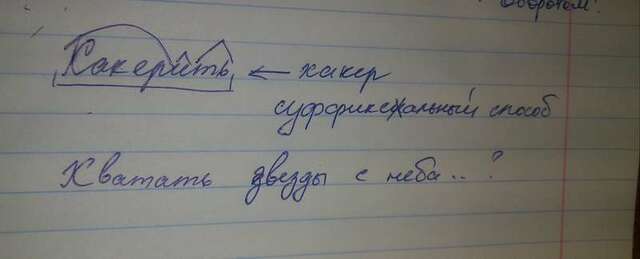 оборотом.
Хакерить ← хакер
суффиксальный способ
Хватать звезды с неба..?